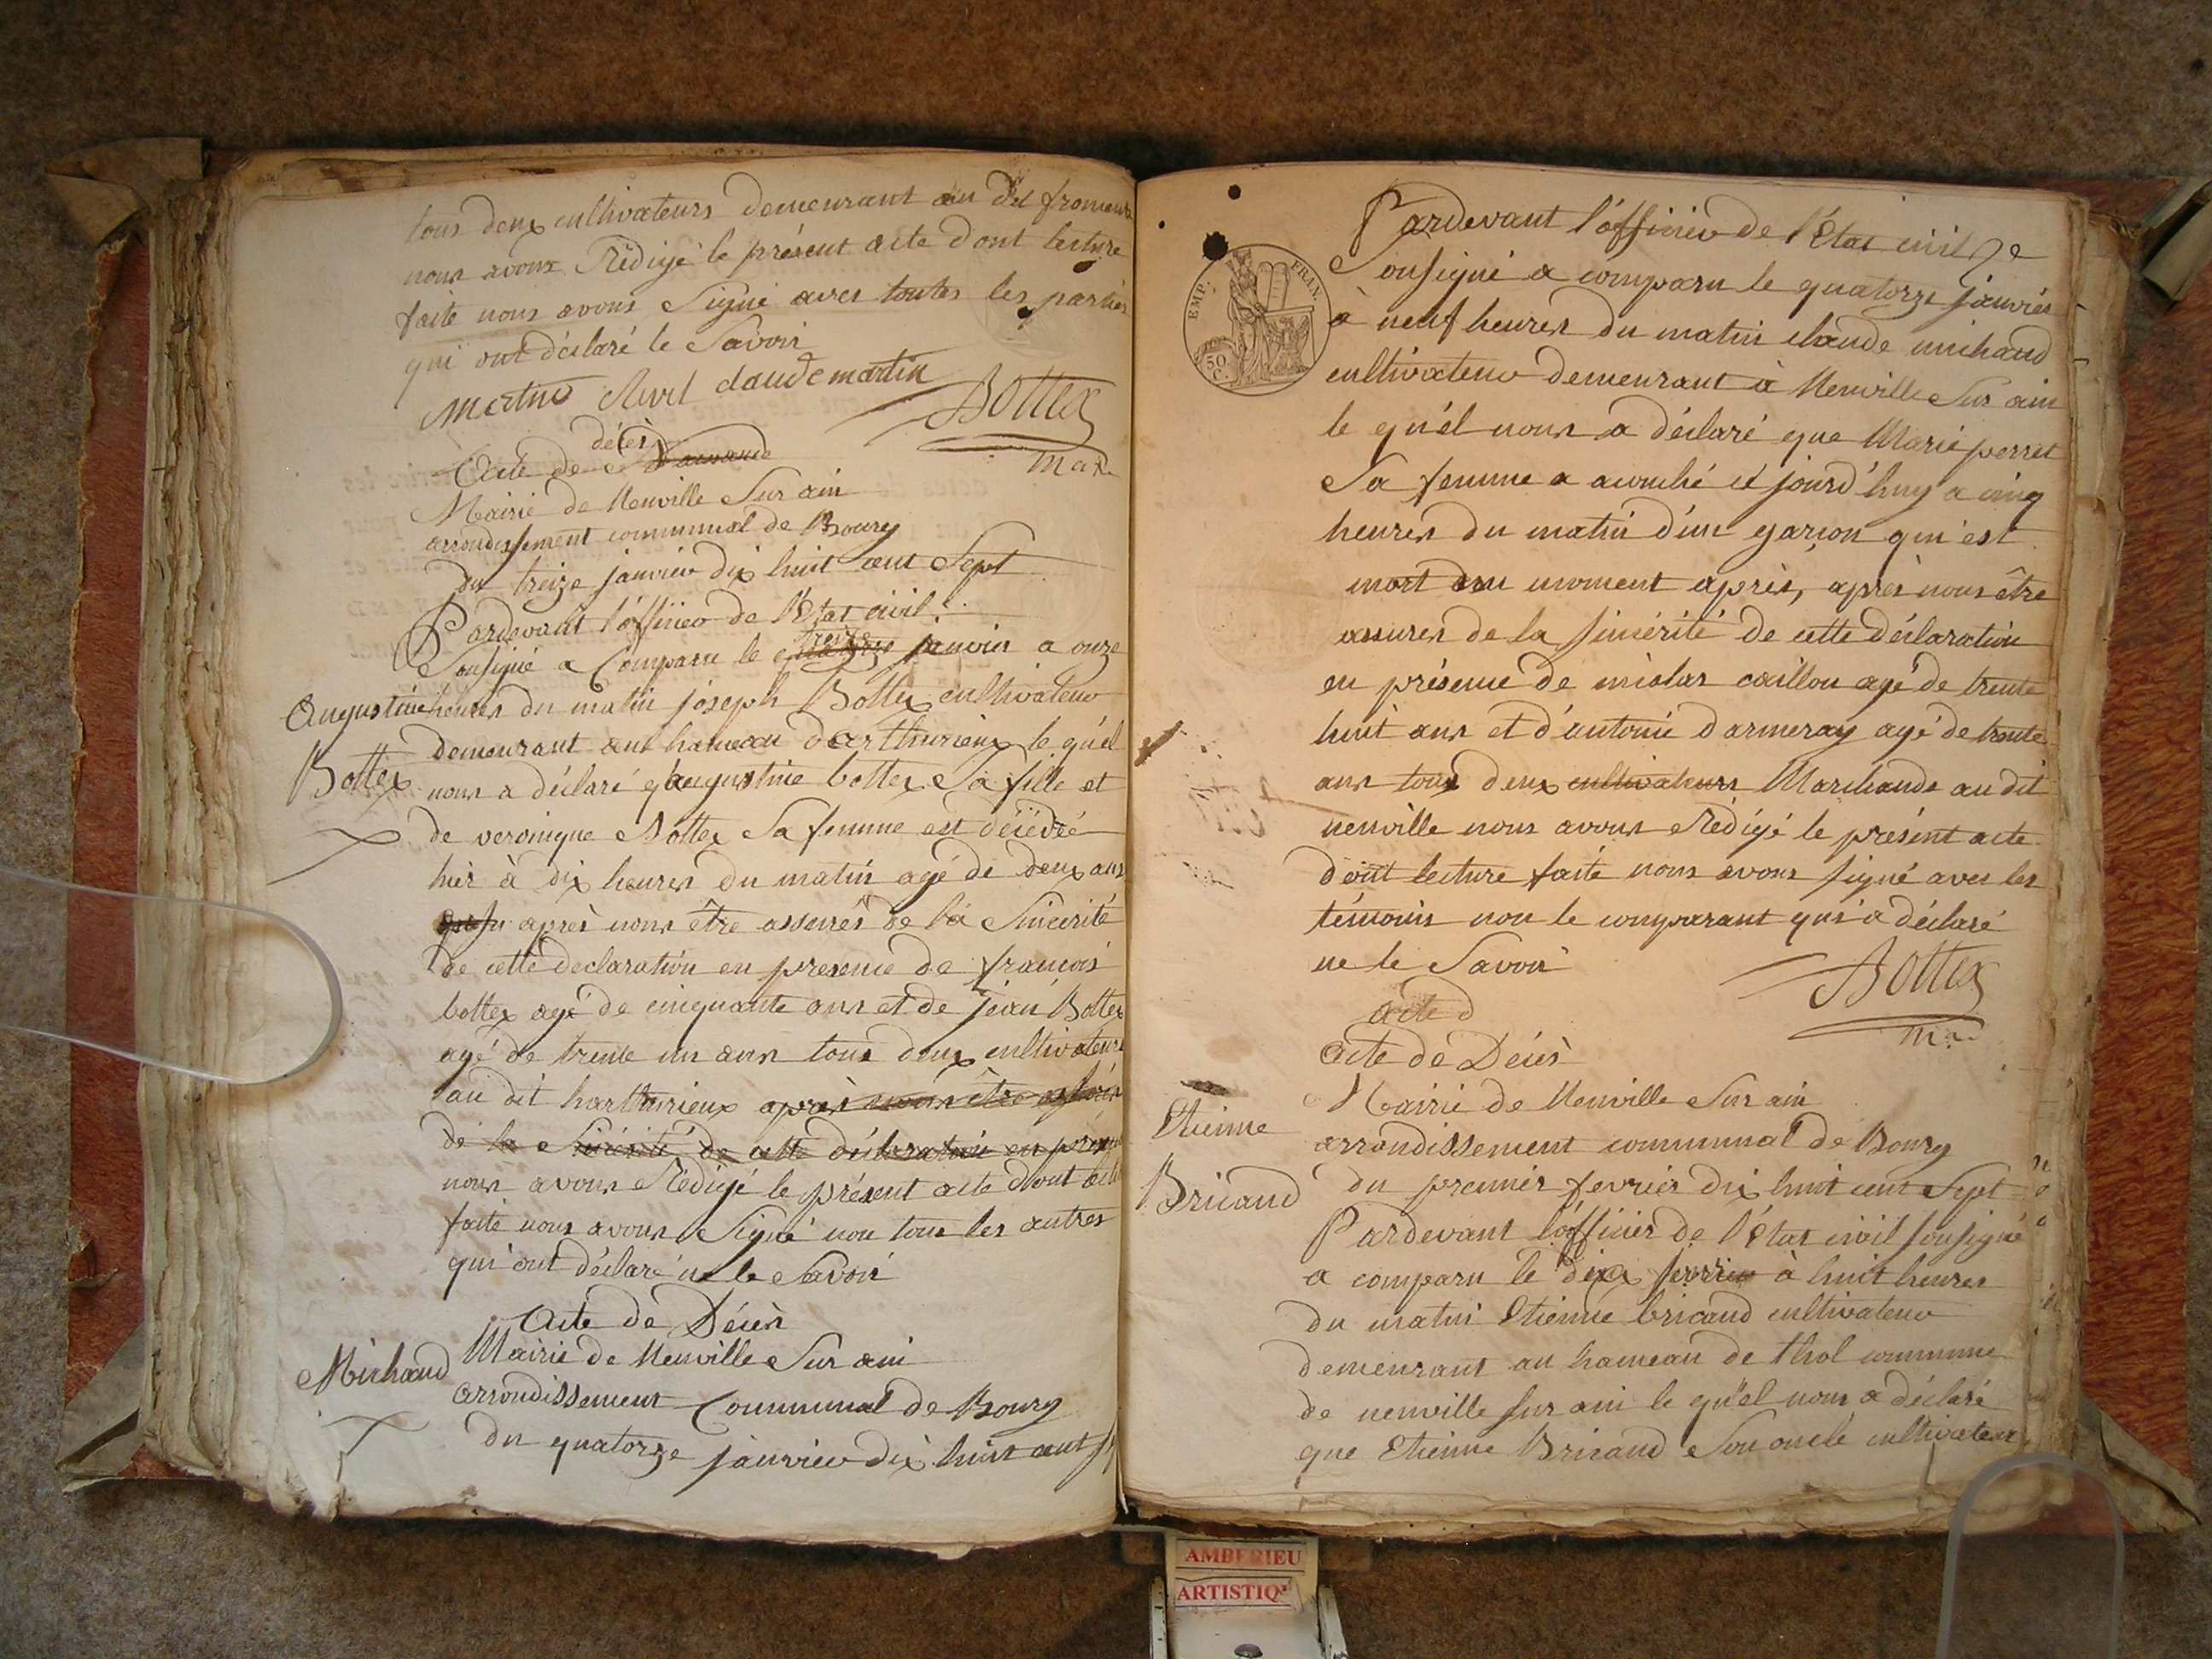 tous deux cultivateurs demeurant au dit fromente
nous avons Rédigé le présent acte dont lecture
faite nous avons Signé avec toutes les parties
qui ont déclaré le Savoir
claude martin
Bottex
maire
décès
Acte de
Mairie de Neuville Sur ain
arrondissement communal de Bourg
du treize janvier dix huit cent Sept
Pardevant l'officier de l'Etat civil
Sousigné a Comparu le treize janvier a onze
Augustine heures du matin joseph Bottex cultivateur
demeurant aut hameau d'arthurieux le qu'el
Bottex nous a déclaré q'augustine bottex Sa fille et
de veronique Bottex Sa femme est décédée
hier à dix heures du matin agé de deux ans
après nous être assurés de la Sincerité
de cette declaration en presence de francois
bottex agé de cinquante ans et de jean Bottex
agé de trente un ans tous deux cultivateurs
au dit harthurieux après
de la Sincérité de cette déclaration en
nous avons Rédigé le présent acte dont
faite nous avons Signé non tous les autres
qui ont déclaré ne le Savoir
Acte de Décès
Michaud Mairie de Neuville Sur ain
arrondissement Communal de Bourg
du quatorze janvier dix huit cent
Pardevant l'officier de l'Etat civil
Sousigné a comparu le quatorze janvier
à neuf heures du matin claude michaud
cultivateur demeurant à Neuville Sur ain
le qu'el nous a déclaré que Marie perret
Sa femme a acouché ce jourd'huy a cinq
heures du matin d'un garçon qui est
mort un moment après, après nous être
assurer de la sincérité de cette déclaration
en présence de nicolas caillon agé de trente
huit ans et d'antoine darmeray agé de trente
ans tous deux cultivateurs Marchands au dit
neuville nous avons Rédigé le présent acte
dont lecture faite nous avons signé avec les
témoins non le comparant qui a déclaré
ne le Savoir
Bottex
acte d
maire
Acte de Décès
Mairie de Neuville Sur ain
Etienne arrondissement communal de Bourg
Bricaud du premier fevrier dix huit cent Sept
Pardevant l'officier de l'Etat civil sousigné
a comparu le à huit heures
du matin Etienne bricaud cultivateur
demeurant au hameau de thol commune
de neuville sur ain le qu'el nous a déclaré
que Etienne Bricaud Son oncle cultivateur
EMP. FRAN.
50 C.
AMBERIEU
ARTISTIQ